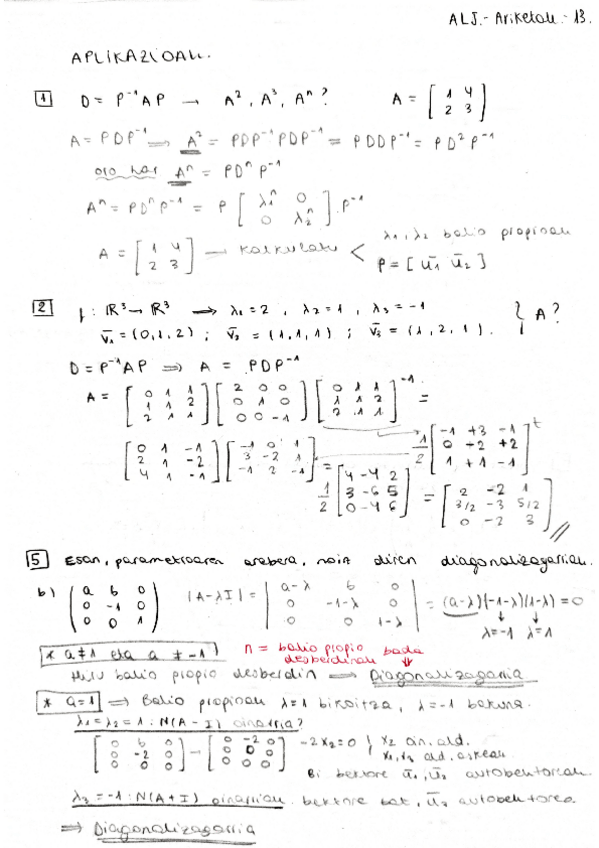 ALJ.- Ariketak.- 13.
APLIKAZIOAK.
1 D = P⁻¹AP → A², A³, Aⁿ? A = [1 4; 2 3]
A = PDP⁻¹ ⟹ A² = PDP⁻¹PDP⁻¹ = PDDP⁻¹ = PD²P⁻¹
oro har Aⁿ = PDⁿP⁻¹
Aⁿ = PDⁿP⁻¹ = P [λ₁ⁿ 0; 0 λ₂ⁿ] . P⁻¹
A = [1 4; 2 3] → Kalkulatu < λ₁, λ₂ balio propioak
P = [ū₁ ū₂]
2 f: ℝ³→ℝ³ ⟹ λ₁=2, λ₂=1, λ₃=-1 } A?
v̄₁=(0,1,2); v̄₂=(1,1,1); v̄₃=(1,2,1).
D = P⁻¹AP ⟹ A = PDP⁻¹
A = [0 1 1; 1 1 2; 2 1 1] [2 0 0; 0 1 0; 0 0 -1] [0 1 1; 1 1 2; 2 1 1]⁻¹ =
[0 1 -1; 2 1 -2; 4 1 -1] [-1 0 1; 3 -2 1; -1 2 -1] 1/2 [-1 +3 -1; 0 +2 +2; 1 +1 -1]ᵗ
= 1/2 [4 -4 2; 3 -6 5; 0 -4 6] = [2 -2 1; 3/2 -3 5/2; 0 -2 3] //
5 Esan, parametroaren arabera, noiz diren diagonalizagarriak.
b) (a b 0; 0 -1 0; 0 0 1) |A-λI| = |a-λ b 0; 0 -1-λ 0; 0 0 1-λ| = (a-λ)(-1-λ)(1-λ) = 0
λ=-1 λ=1
* a≠1 eta a≠-1 n = balio propio desberdinak bada
Hiru balio propio desberdin ⟹ Diagonalizagarria
* a=1 ⟹ Balio propioak λ=1 bikoitza, λ=-1 bakuna.
λ₁=λ₂=1: N(A-I) oinarria?
[0 b 0; 0 -2 0; 0 0 0] → [0 -2 0; 0 0 0; 0 0 0] -2x₂=0 { x₂ oin. ald.
x₁, x₃ ald. askeak
Bi bektore ū₁, ū₂ autobektoreak.
λ₃=-1: N(A+I) oinarriak bektore bat, ū₃ autobektorea
⟹ Diagonalizagarria